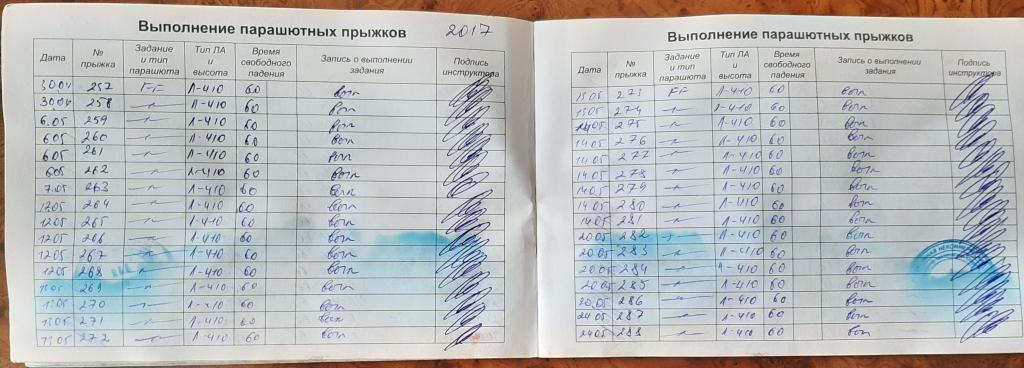 Выполнение парашютных прыжков 2017
Дата № прыжка Задание и тип парашюта Тип ЛА и высота Время свободного падения Запись о выполнении задания Подпись инструктора
30.04 257 FF Л-410 60 вып
30.04 258 -"- Л-410 60 вып
6.05 259 -"- Л-410 60 вып
6.05 260 -"- Л-410 60 вып
6.05 261 -"- Л-410 60 вып
6.05 262 -"- Л-410 60 вып
7.05 263 -"- Л-410 60 вып
12.05 264 -"- Л-410 60 вып
12.05 265 -"- Л-410 60 вып
12.05 266 -"- Л-410 60 вып
12.05 267 -"- Л-410 60 вып
12.05 268 -"- Л-410 60 вып
13.05 269 -"- Л-410 60 вып
13.05 270 -"- Л-410 60 вып
13.05 271 -"- Л-410 60 вып
13.05 272 -"- Л-410 60 вып
Выполнение парашютных прыжков
Дата № прыжка Задание и тип парашюта Тип ЛА и высота Время свободного падения Запись о выполнении задания Подпись инструктора
13.05 273 FF Л-410 60 вып
13.05 274 -"- Л-410 60 вып
14.05 275 -"- Л-410 60 вып
14.05 276 -"- Л-410 60 вып
14.05 277 -"- Л-410 60 вып
14.05 278 -"- Л-410 60 вып
14.05 279 -"- Л-410 60 вып
14.05 280 -"- Л-410 60 вып
14.05 281 -"- Л-410 60 вып
20.05 282 -"- Л-410 60 вып
20.05 283 -"- Л-410 60 вып
20.05 284 -"- Л-410 60 вып
20.05 285 -"- Л-410 60 вып
20.05 286 -"- Л-410 60 вып
24.05 287 -"- Л-410 60 вып
24.05 288 -"- Л-410 60 вып